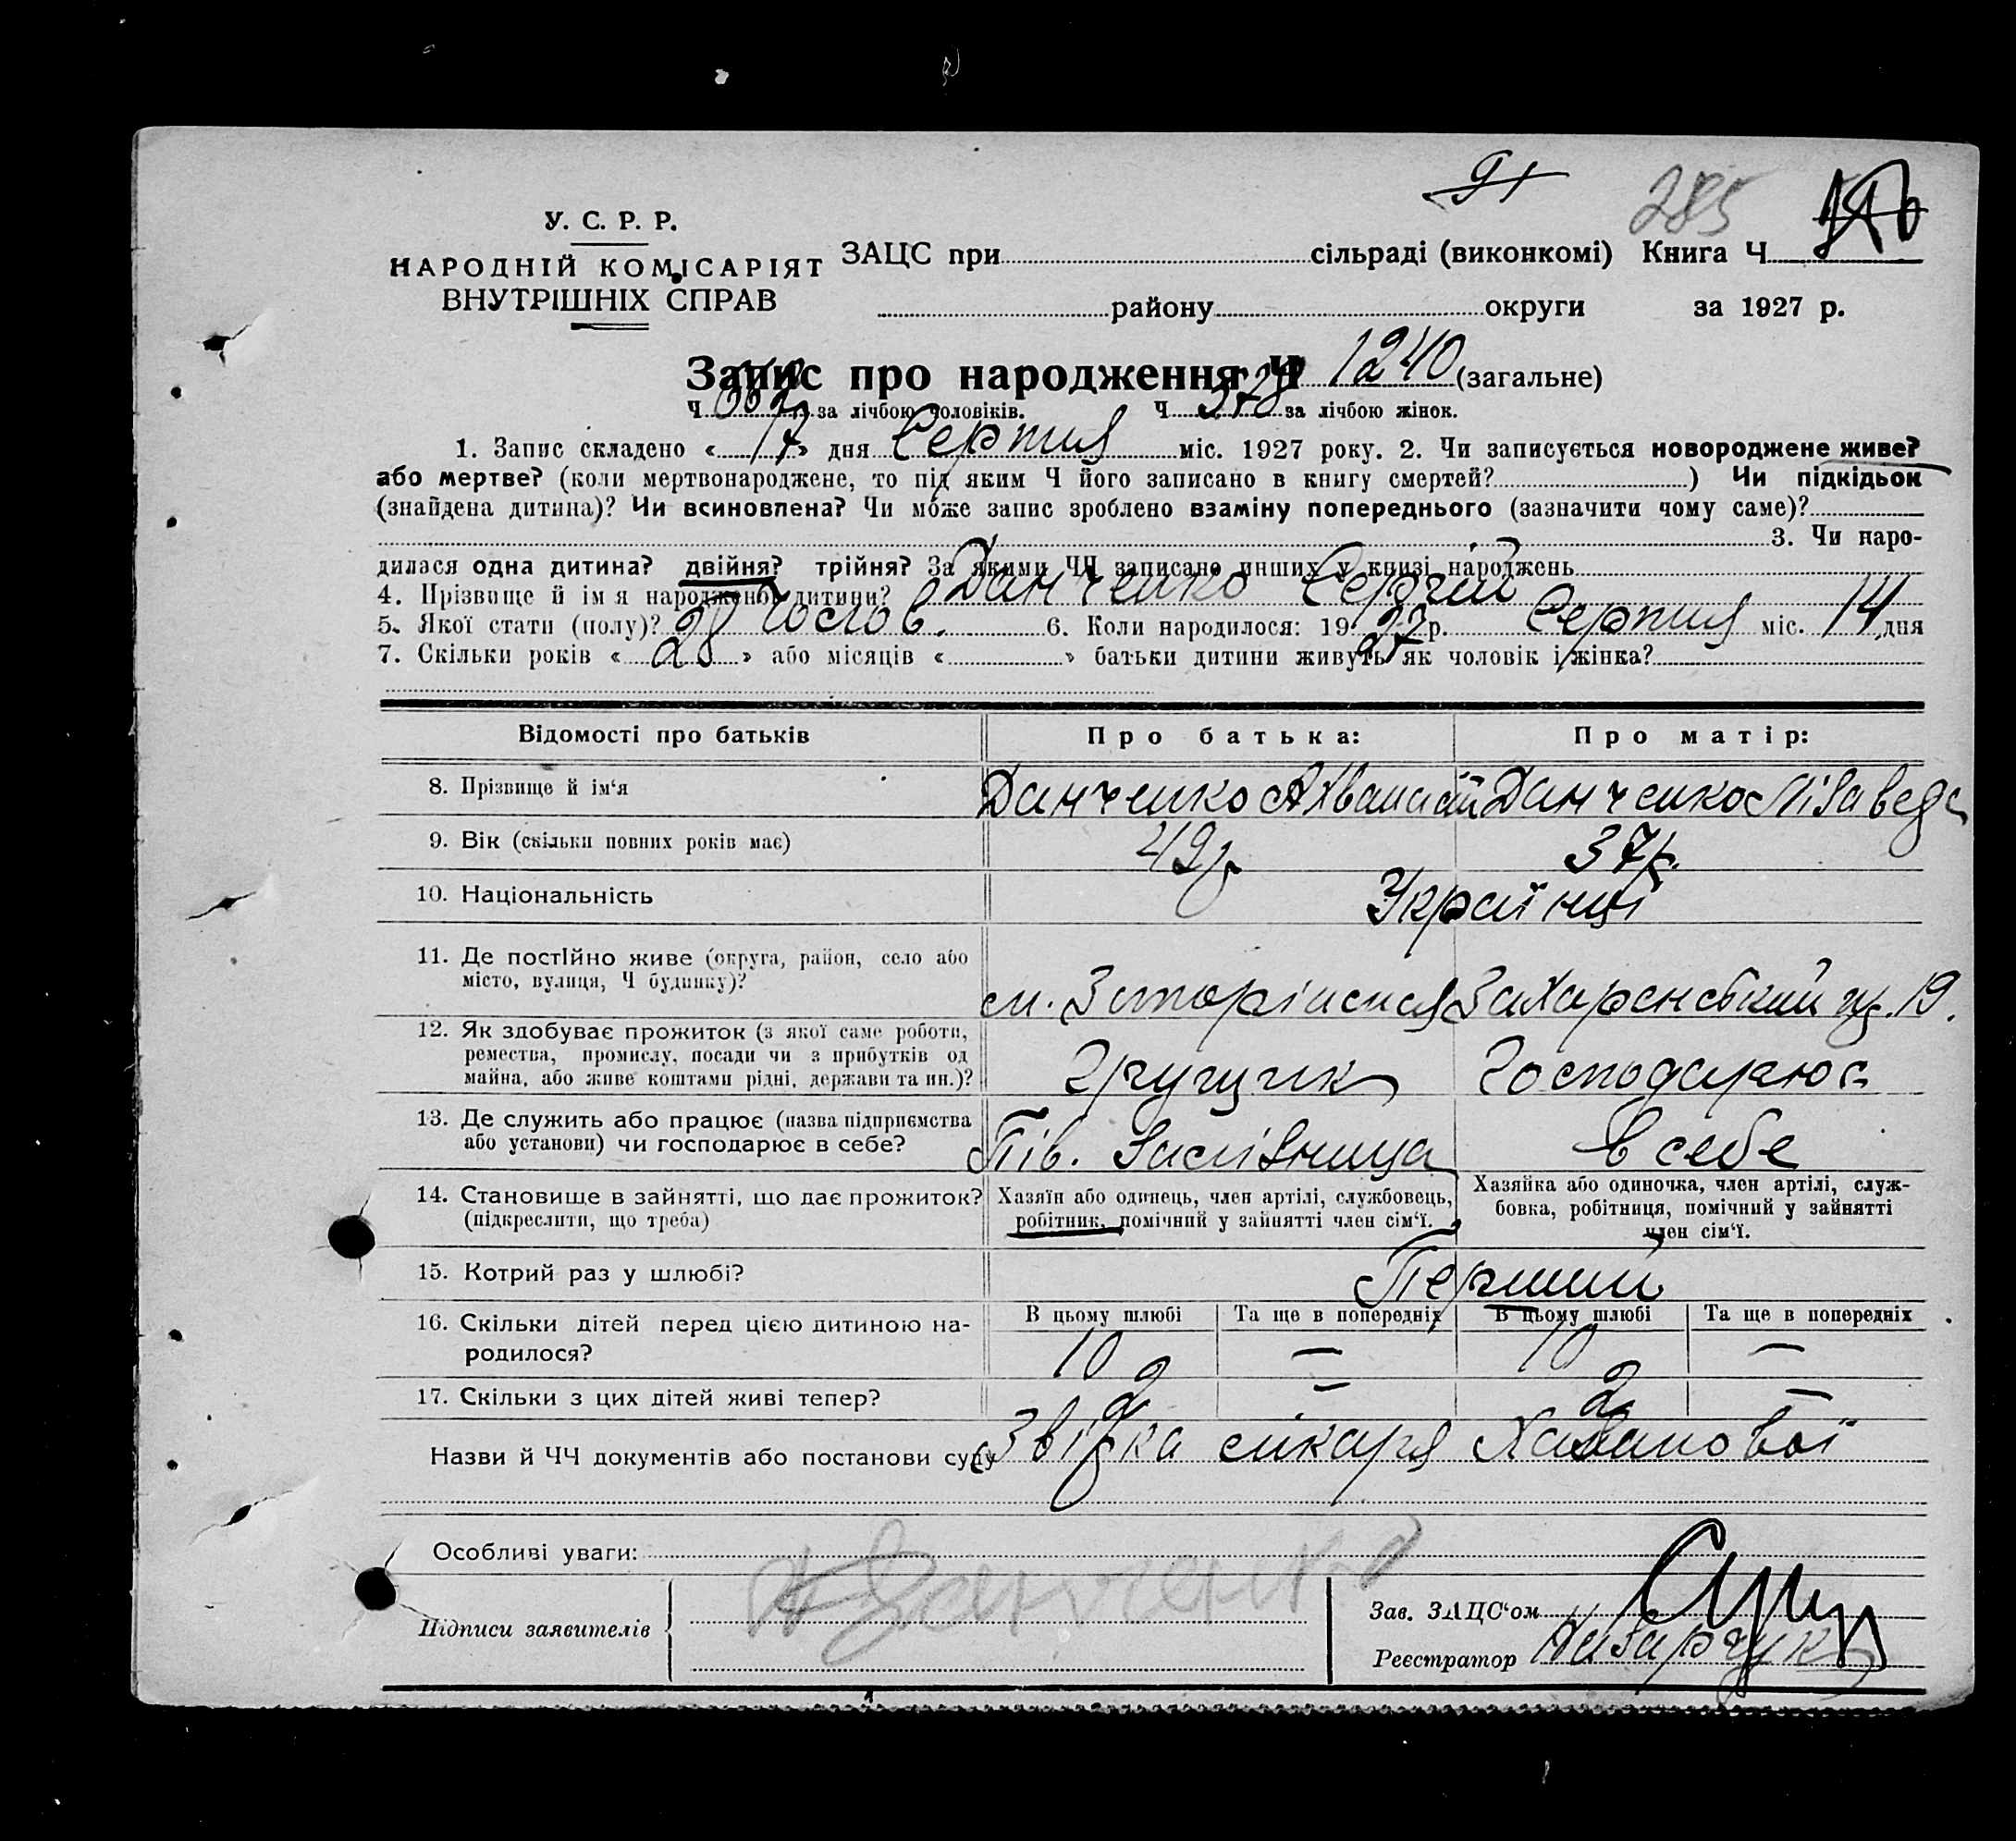 91 285
У. С. Р. Р.
НАРОДНІЙ КОМІСАРІЯТ
ВНУТРІШНІХ СПРАВ
ЗАЦС при сільраді (виконкомі) Книга Ч
району округи за 1927 р.
Запис про народження Ч 1240 (загальне)
Ч за лічбою чоловіків. Ч 578 за лічбою жінок.
1. Запис складено « 17 » дня Серпня міс. 1927 року. 2. Чи записується новороджене живе?
або мертве? (коли мертвонароджене, то під яким Ч його записано в книгу смертей? ) Чи підкідьок
(знайдена дитина)? Чи всиновлена? Чи може запис зроблено взаміну попереднього (зазначити чому саме)?
3. Чи наро-
дилася одна дитина? двійня? трійня? За якими ЧЧ записано инших у книзі народжень
4. Прізвище й ім'я народженої дитини? Данченко Сергій
5. Якої стати (полу)? Чолов. 6. Коли народилося: 1927 р. Серпня міс. 14 дня
7. Скільки років « 20 » або місяців « » батьки дитини живуть як чоловік і жінка?
Відомості про батьків Про батька: Про матір:
8. Прізвище й ім'я Данченко Данченко
9. Вік (скільки повних років має) 42р 37р.
10. Національність Українці
11. Де постійно живе (округа, район, село або
місто, вулиця, Ч будинку)? 19.
12. Як здобуває прожиток (з якої саме роботи,
ремества, промислу, посади чи з прибутків од
майна, або живе коштами рідні, держави та ин.)? Грущик Господарює
13. Де служить або працює (назва підприємства
або установи) чи господарює в себе? Пів. Залізниця в себе
14. Становище в зайнятті, що дає прожиток?
(підкреслити, що треба)
Хазяїн або одинець, член артілі, службовець,
робітник, помічний у зайнятті член сім'ї.
Хазяйка або одиночка, член артілі, служ-
бовка, робітниця, помічний у зайнятті
член сім'ї.
15. Котрий раз у шлюбі? Перший
В цьому шлюбі Та ще в попередніх В цьому шлюбі Та ще в попередніх
16. Скільки дітей перед цією дитиною на-
родилося? 10 — 10 —
17. Скільки з цих дітей живі тепер? 2 — 2 —
Назви й ЧЧ документів або постанови суду Звістка лікаря
Особливі уваги:
Підписи заявителів Данченко
Зав. ЗАЦС'ом
Реєстратор Назарчук